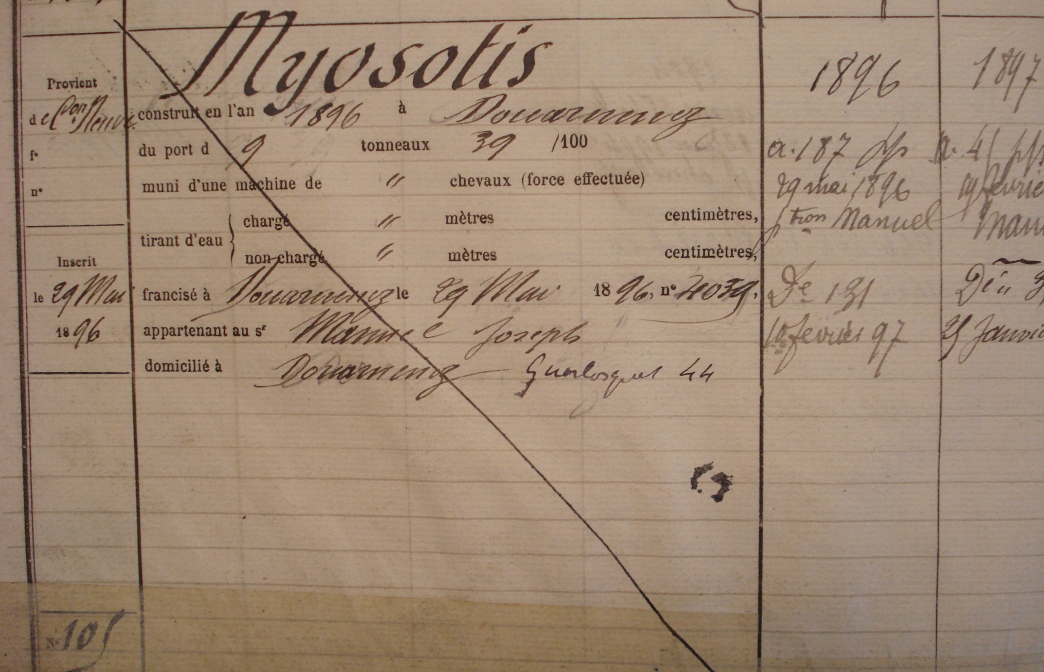 Myosotis
Provient
de Con Neuve
fº
nº
construit en l'an 1896 à Douarnenez
du port d 9 tonneaux 39 /100
muni d'une machine de " chevaux (force effectuée)
tirant d'eau { chargé " mètres centimètres,
non chargé " mètres centimètres,
Inscrit
le 29 Mai
1896
francisé à Douarnenez le 29 Mai 1896, nº 4039.
appartenant au sr Manuel Joseph
domicilié à Douarnenez Guerlosquet 44
Nº 105
1896
a. 187
29 mai 1896
ptron Manuel
De 131
10 février 97
1897
19 févrie
Manu
25 Janvie